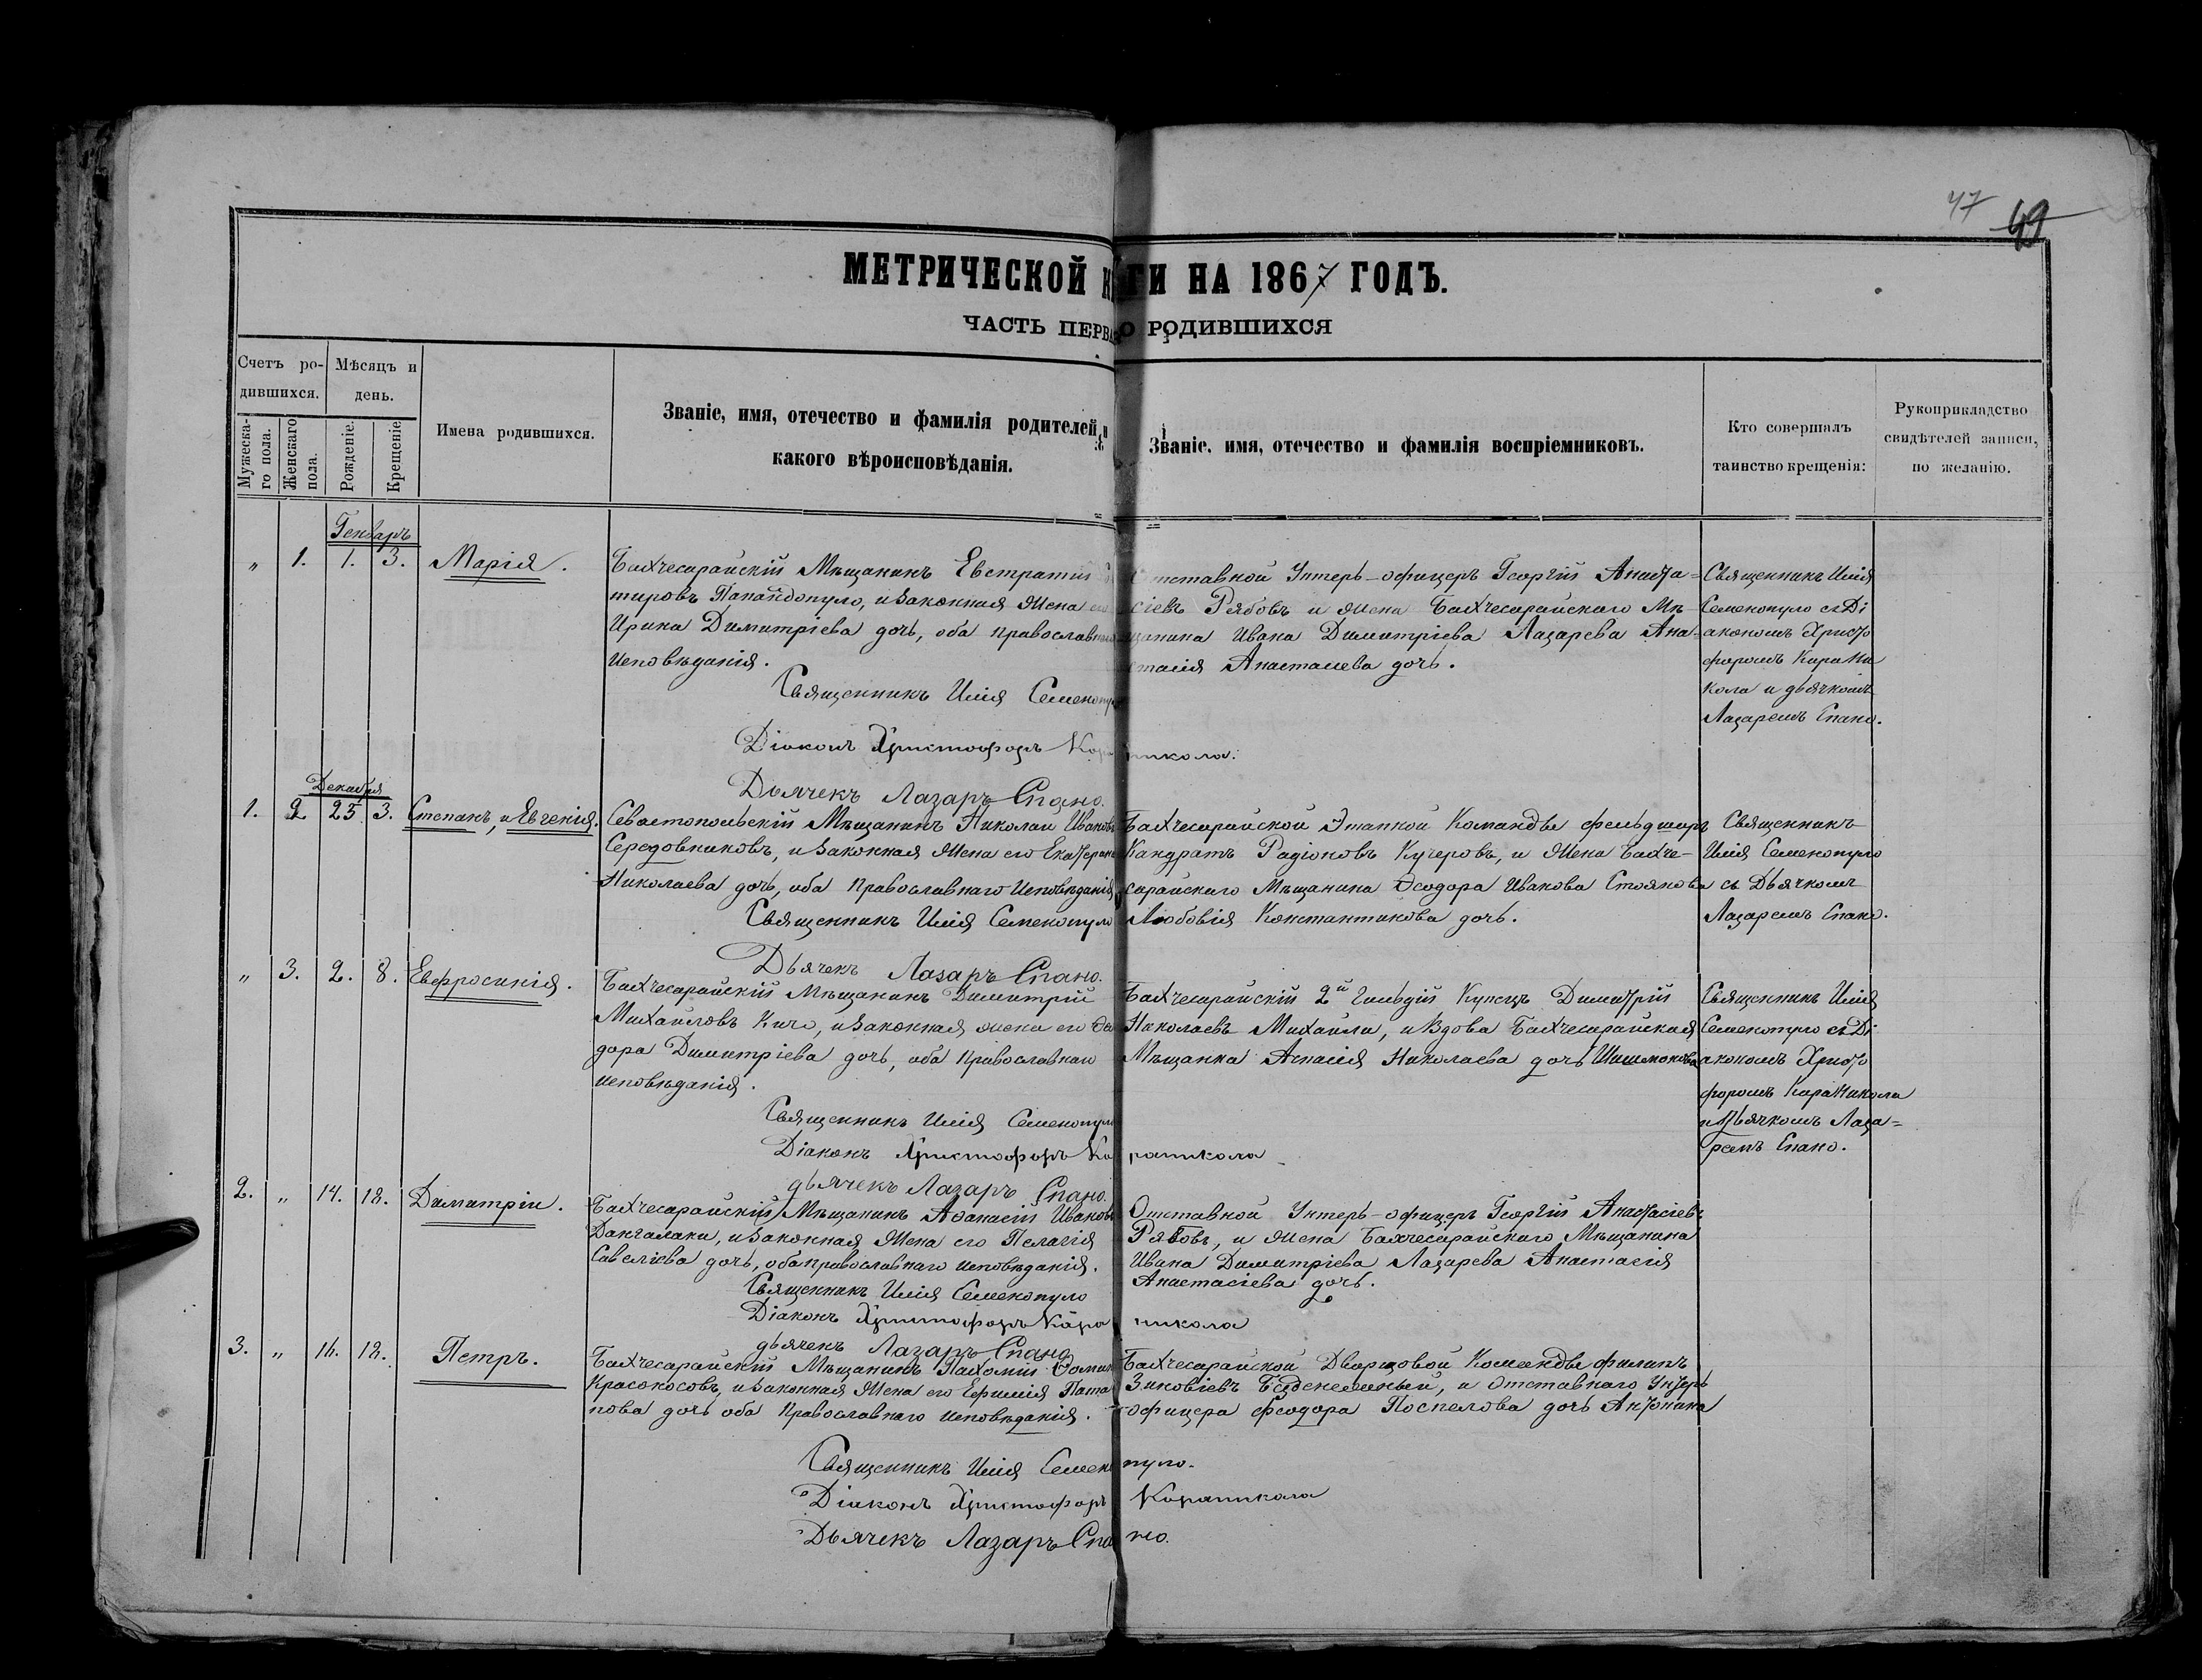 47 49
МЕТРИЧЕСКОЙ К ГИ НА 1867 ГОДЪ.
ЧАСТЬ ПЕРВА О РОДИВШИХСЯ
Счетъ ро-
дившихся.
Мужеска-
го пола.
Женскаго
пола.
Мѣсяцъ и
день.
Рожденіе.
Крещеніе
Имена родившихся.
Званіе, имя, отечество и фамилія родителей и
какого вѣроисповѣданія.
Званіе, имя, отечество и фамилія воспріемниковъ.
Кто совершалъ
таинство крещенія:
Рукоприкладство
свидѣтелей записи,
по желанію.
Генварь
„ 1. 1. 3. Марія.
Бахчесарайскій Мѣщанинъ Евстратій
тировъ Папандопуло, и Законная Жена его
Ирина Димитріева дочь, оба православнаго
исповѣданія.
Священникъ Илія Семенопуло
Діаконъ Христофоръ Кара
Дьячекъ Лазарь Спано.
Отставной Унтеръ-офицеръ Георгій Анаста=
сіевъ Рябовъ и Жена Бахчесарайскаго Мѣ-
щанина Ивана Димитріева Лазарева Ана-
стасія Анастасіева дочь.
никола.
Священникъ Илія
Семенопуло съ Ді
акономъ Христо
форомъ Карани
кола и дьячкомъ
Лазаремъ Спано.
Декабря
1. 2. 25 3. Степанъ, и Евгенія.
Севастопольскій Мѣщанинъ Николай Ивановъ
Середовниковъ, и Законная Жена его Екатерина
Николаева дочь, оба Православнаго Исповѣданія
Священникъ Илія Семенопуло
Дьячекъ Лазарь Спано.
Бахчесарайской Этапной Команды фельдшаръ
Кандратъ Радіоновъ Кучеровъ, и Жена Бахче-
сарайскаго Мѣщанина Ѳеодора Иванова Стоянова
Любовія Константинова дочь.
Священникъ
Илія Семенопуло
съ Дьячкомъ
Лазаремъ Спано.
„ 3. 2. 8. Евфросинія.
Бахчесарайскій Мѣщанинъ Димитрій
Михайловъ Кичо, и Законная жена его Ѳео
дора Димитріева дочь, оба Православнаго
исповѣданія.
Священникъ Илія Семенопуло
Діаконъ Христофоръ Ка
дьячекъ Лазарь Спано.
Бахчесарайскій 2й Гильдій Купецъ Димитрій
Николаевъ Михайли, и Вдова Бахчесарайская
Мѣщанка Аспасія Николаева дочь Шишмонова
раникола
Священникъ Илія
Семенопуло съ Ді
акономъ Христо
форомъ Караникола
и Дьячкомъ Лаза=
ремъ Спано.
2. „ 14. 18. Димитрій.
Бахчесарайскій Мѣщанинъ Аѳанасій Ивановъ
Дангалаки, и Законная Жена его Пелагія
Савеліева дочь, оба православнаго исповѣданія.
Священникъ Илія Семенопуло
Діаконъ Христофоръ Кара
дьячекъ Лазарь Спано
Отставной Унтеръ-офицеръ Георгій Анастасіевъ
Рябовъ, и Жена Бахчесарайскаго Мѣщанина
Ивана Димитріева Лазарева Анастасія
Анастасіева дочь.
никола
3. „ 16. 18. Петръ.
Бахчесарайскій Мѣщанинъ Пахомій
Красокосовъ, и Законная Жена его Ефимія Пата
пова дочь оба Православнаго исповѣданія.
Священникъ Илія Семено
Діаконъ Христофоръ
Дьячекъ Лазарь Спа
Бахчесарайской Дворцовой Команды филипъ
Зиновіевъ, и Отставнаго Унтеръ
офицера Феодора Поспелова дочь Антонина
пуло.
Караникола
но.